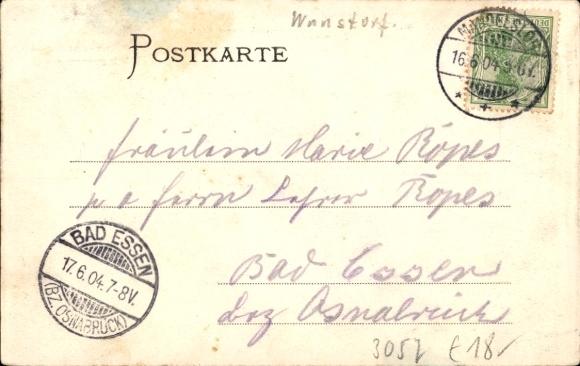 Wunstorf.
POSTKARTE
16.6.04
Fräulein Marie Röpes
p a Herrn Lehrer Röpes
Bad Essen
bez Osnabrück
BAD ESSEN
17.6.04.7-8V.
(BZ. OSNABRÜCK)
3057 € 18.-